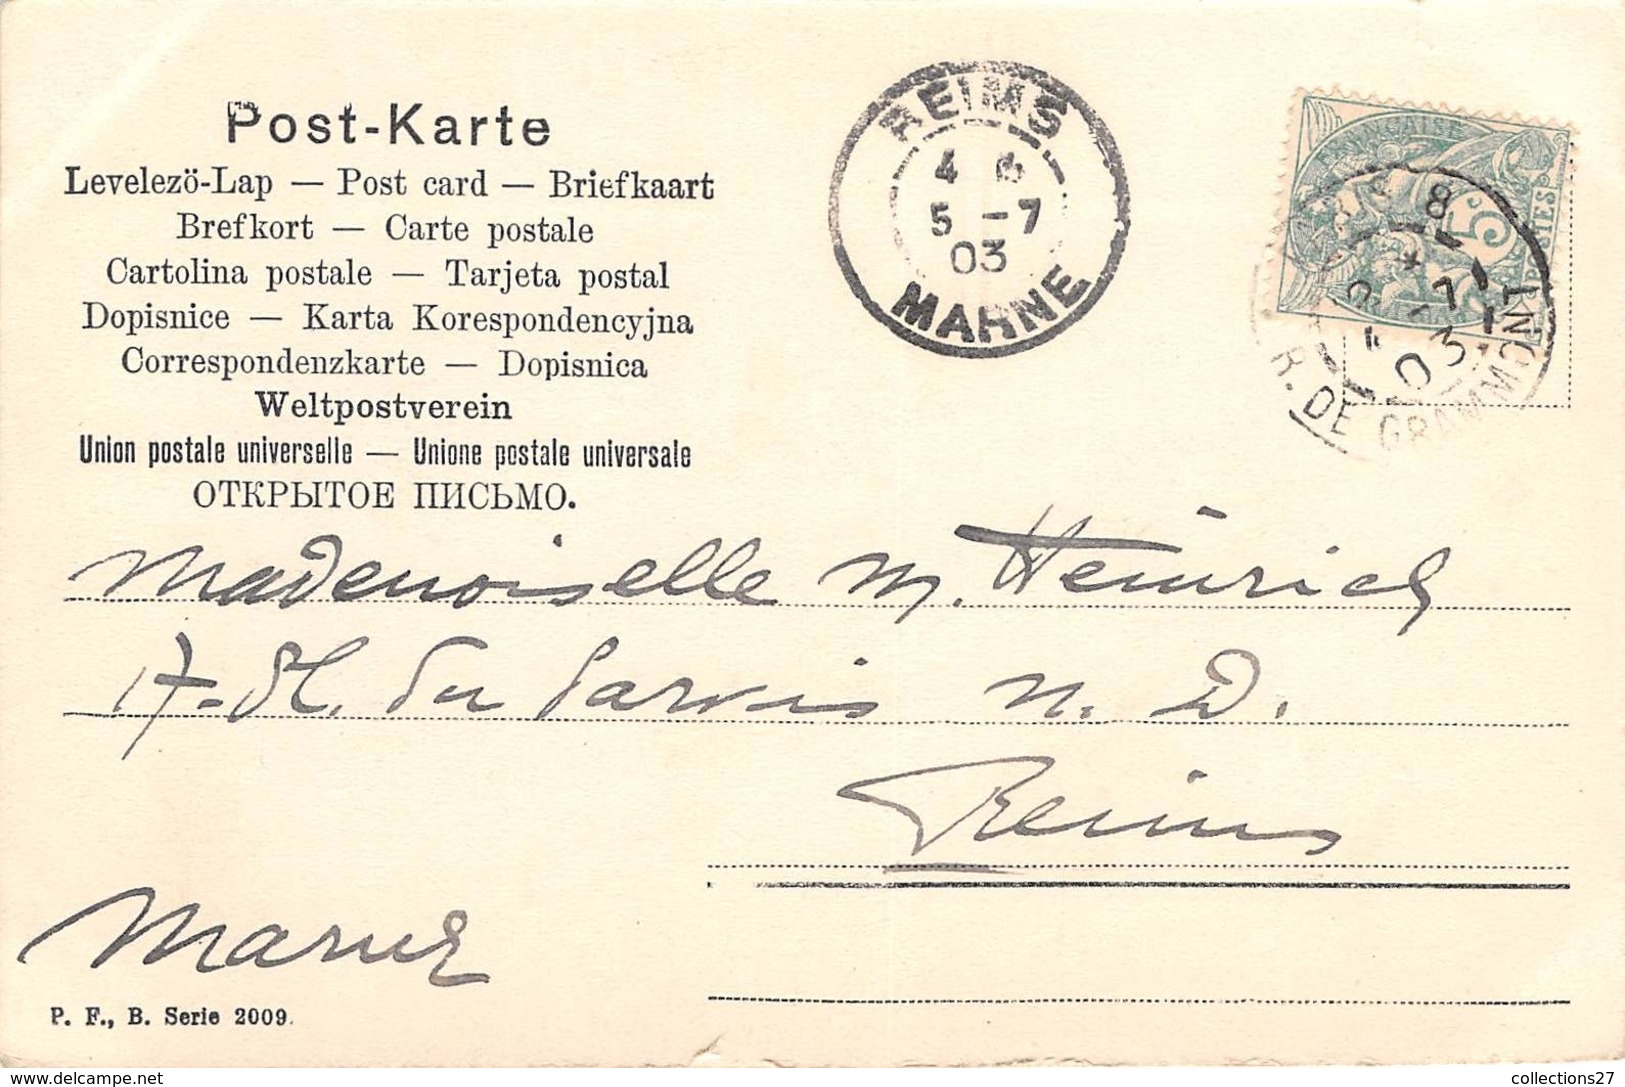 Post-Karte
Levelezö-Lap — Post card — Briefkaart
Brefkort — Carte postale
Cartolina postale — Tarjeta postal
Dopisnice — Karta Korespondencyjna
Correspondenzkarte — Dopisnica
Weltpostverein
Union postale universelle — Unione postale universale
ОТКРЫТОЕ ПИСЬМО.
REIMS
5 -7
03
MARNE
FRANÇAISE
5c
POSTES
8
03
R. DE GRAMMONT
Mademoiselle M. Heinrich
17. Pl. du Parvis N. D.
Reims
Marne
P. F., B. Serie 2009.
collections27